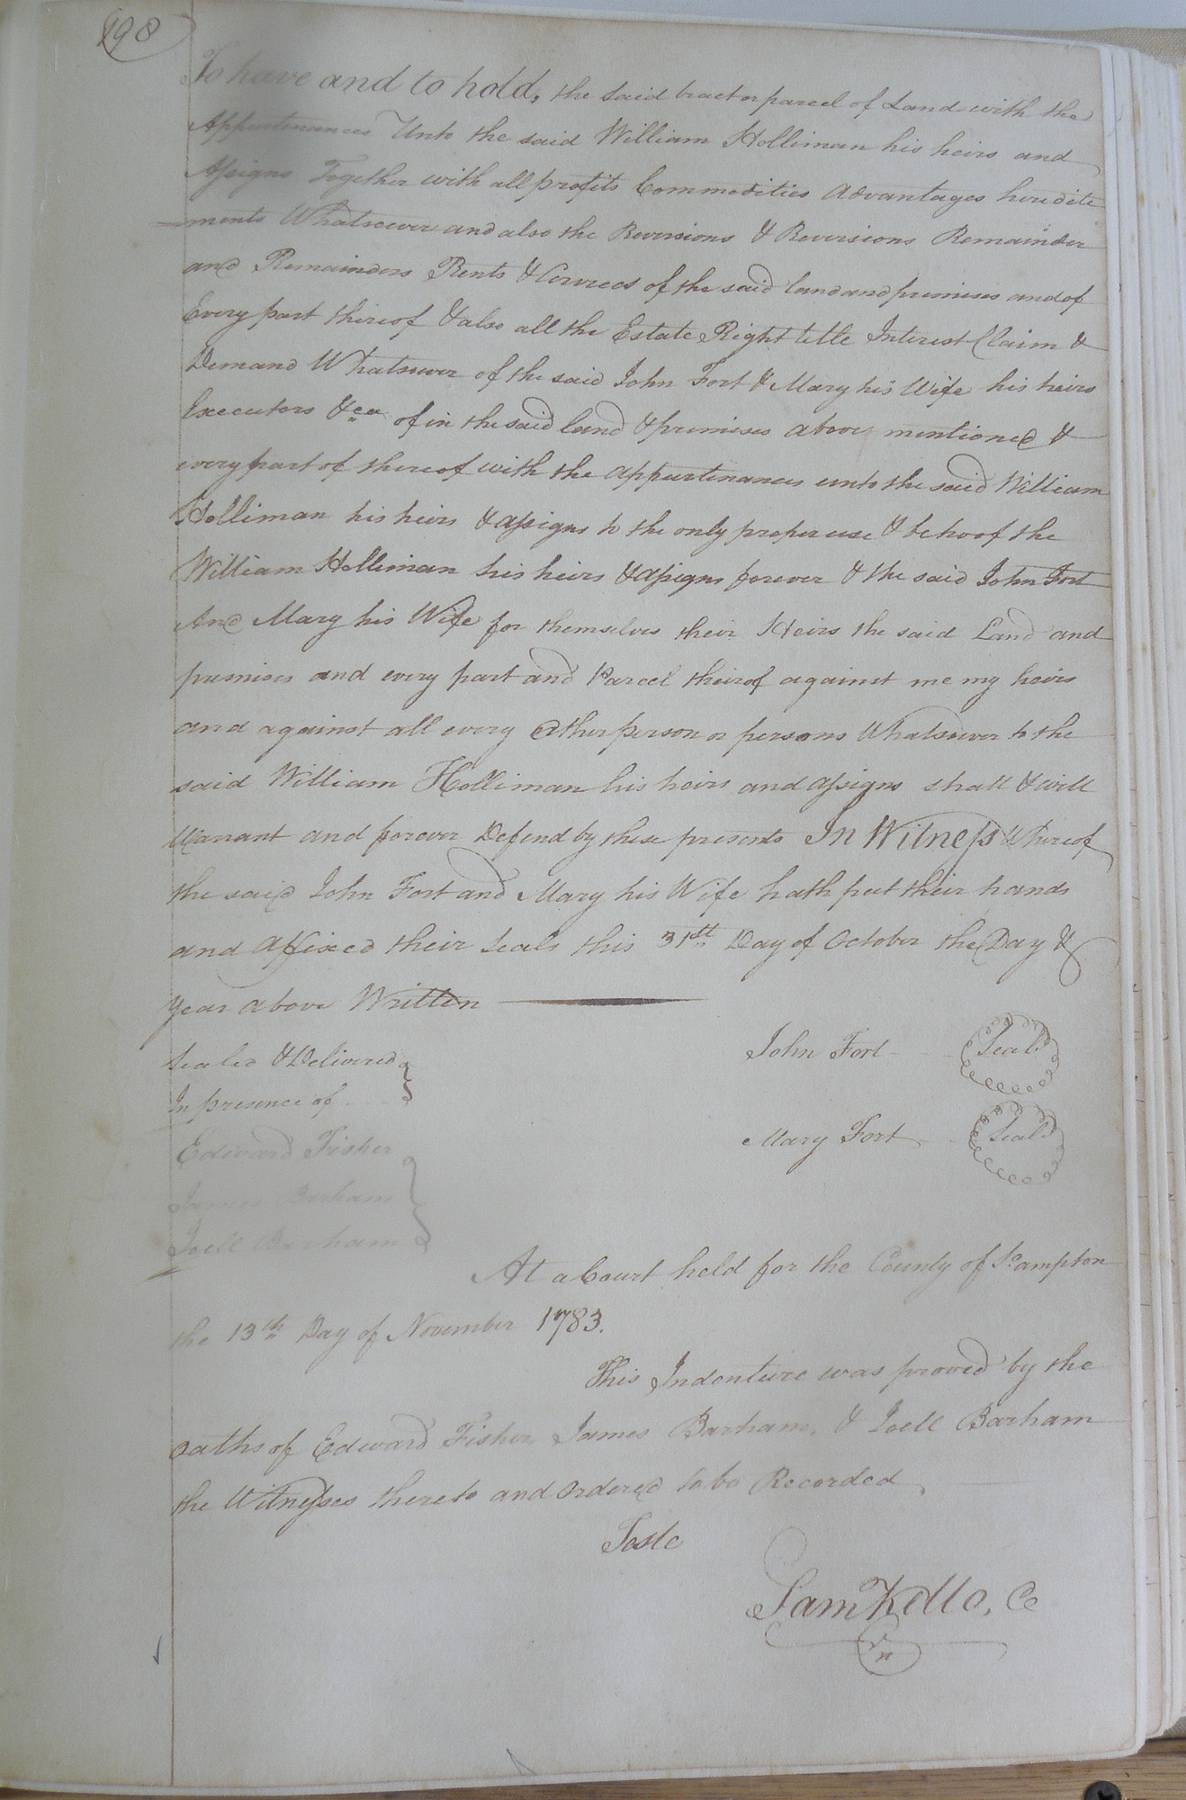 198
To have and to hold, the said tract or parcel of Land with the
Appurtinances Unto the said William Holliman his heirs and
Assigns Together with all profits Commodities advantages heredite
ments Whatsoever and also the Reversions & Reversions Remainder
and Remainders Rents & Services of the said land and premises and of
Every part thereof & also all the Estate Right title Interest Claim &
Demand Whatsoever of the said John Fort & Mary his Wife his heirs
Executors &ca of in the said land & premises above mentioned &
every part of thereof with the appurtinances unto the said William
Holliman his heirs & assigns to the only proper use & behoof the
William Holliman his heirs & assigns forever & the said John Fort
And Mary his Wife for themselves their Heirs the said Land and
premises and every part and Parcel theirof against me my heirs
and against all every other person or persons Whatsoever to the
said William Holliman his heirs and assigns shall & will
Warrant and forever Defend by these presents In Witness Whereof
the said John Fort and Mary his Wife hath put their hands
and affixed their seals this 31st Day of October the Day &
year above Written
Sealed & Delivered
In presence of
John Fort Seal
Edward Fisher
Mary Fort Seal
James Barham
Joell Barham
At a Court held for the County of So.ampton
the 13th Day of November 1783.
This Indenture was proved by the
oaths of Edward Fisher James Barham, & Joell Barham
the Witnesses thereto and ordered to be Recorded
Teste
Sam Kello, Cc